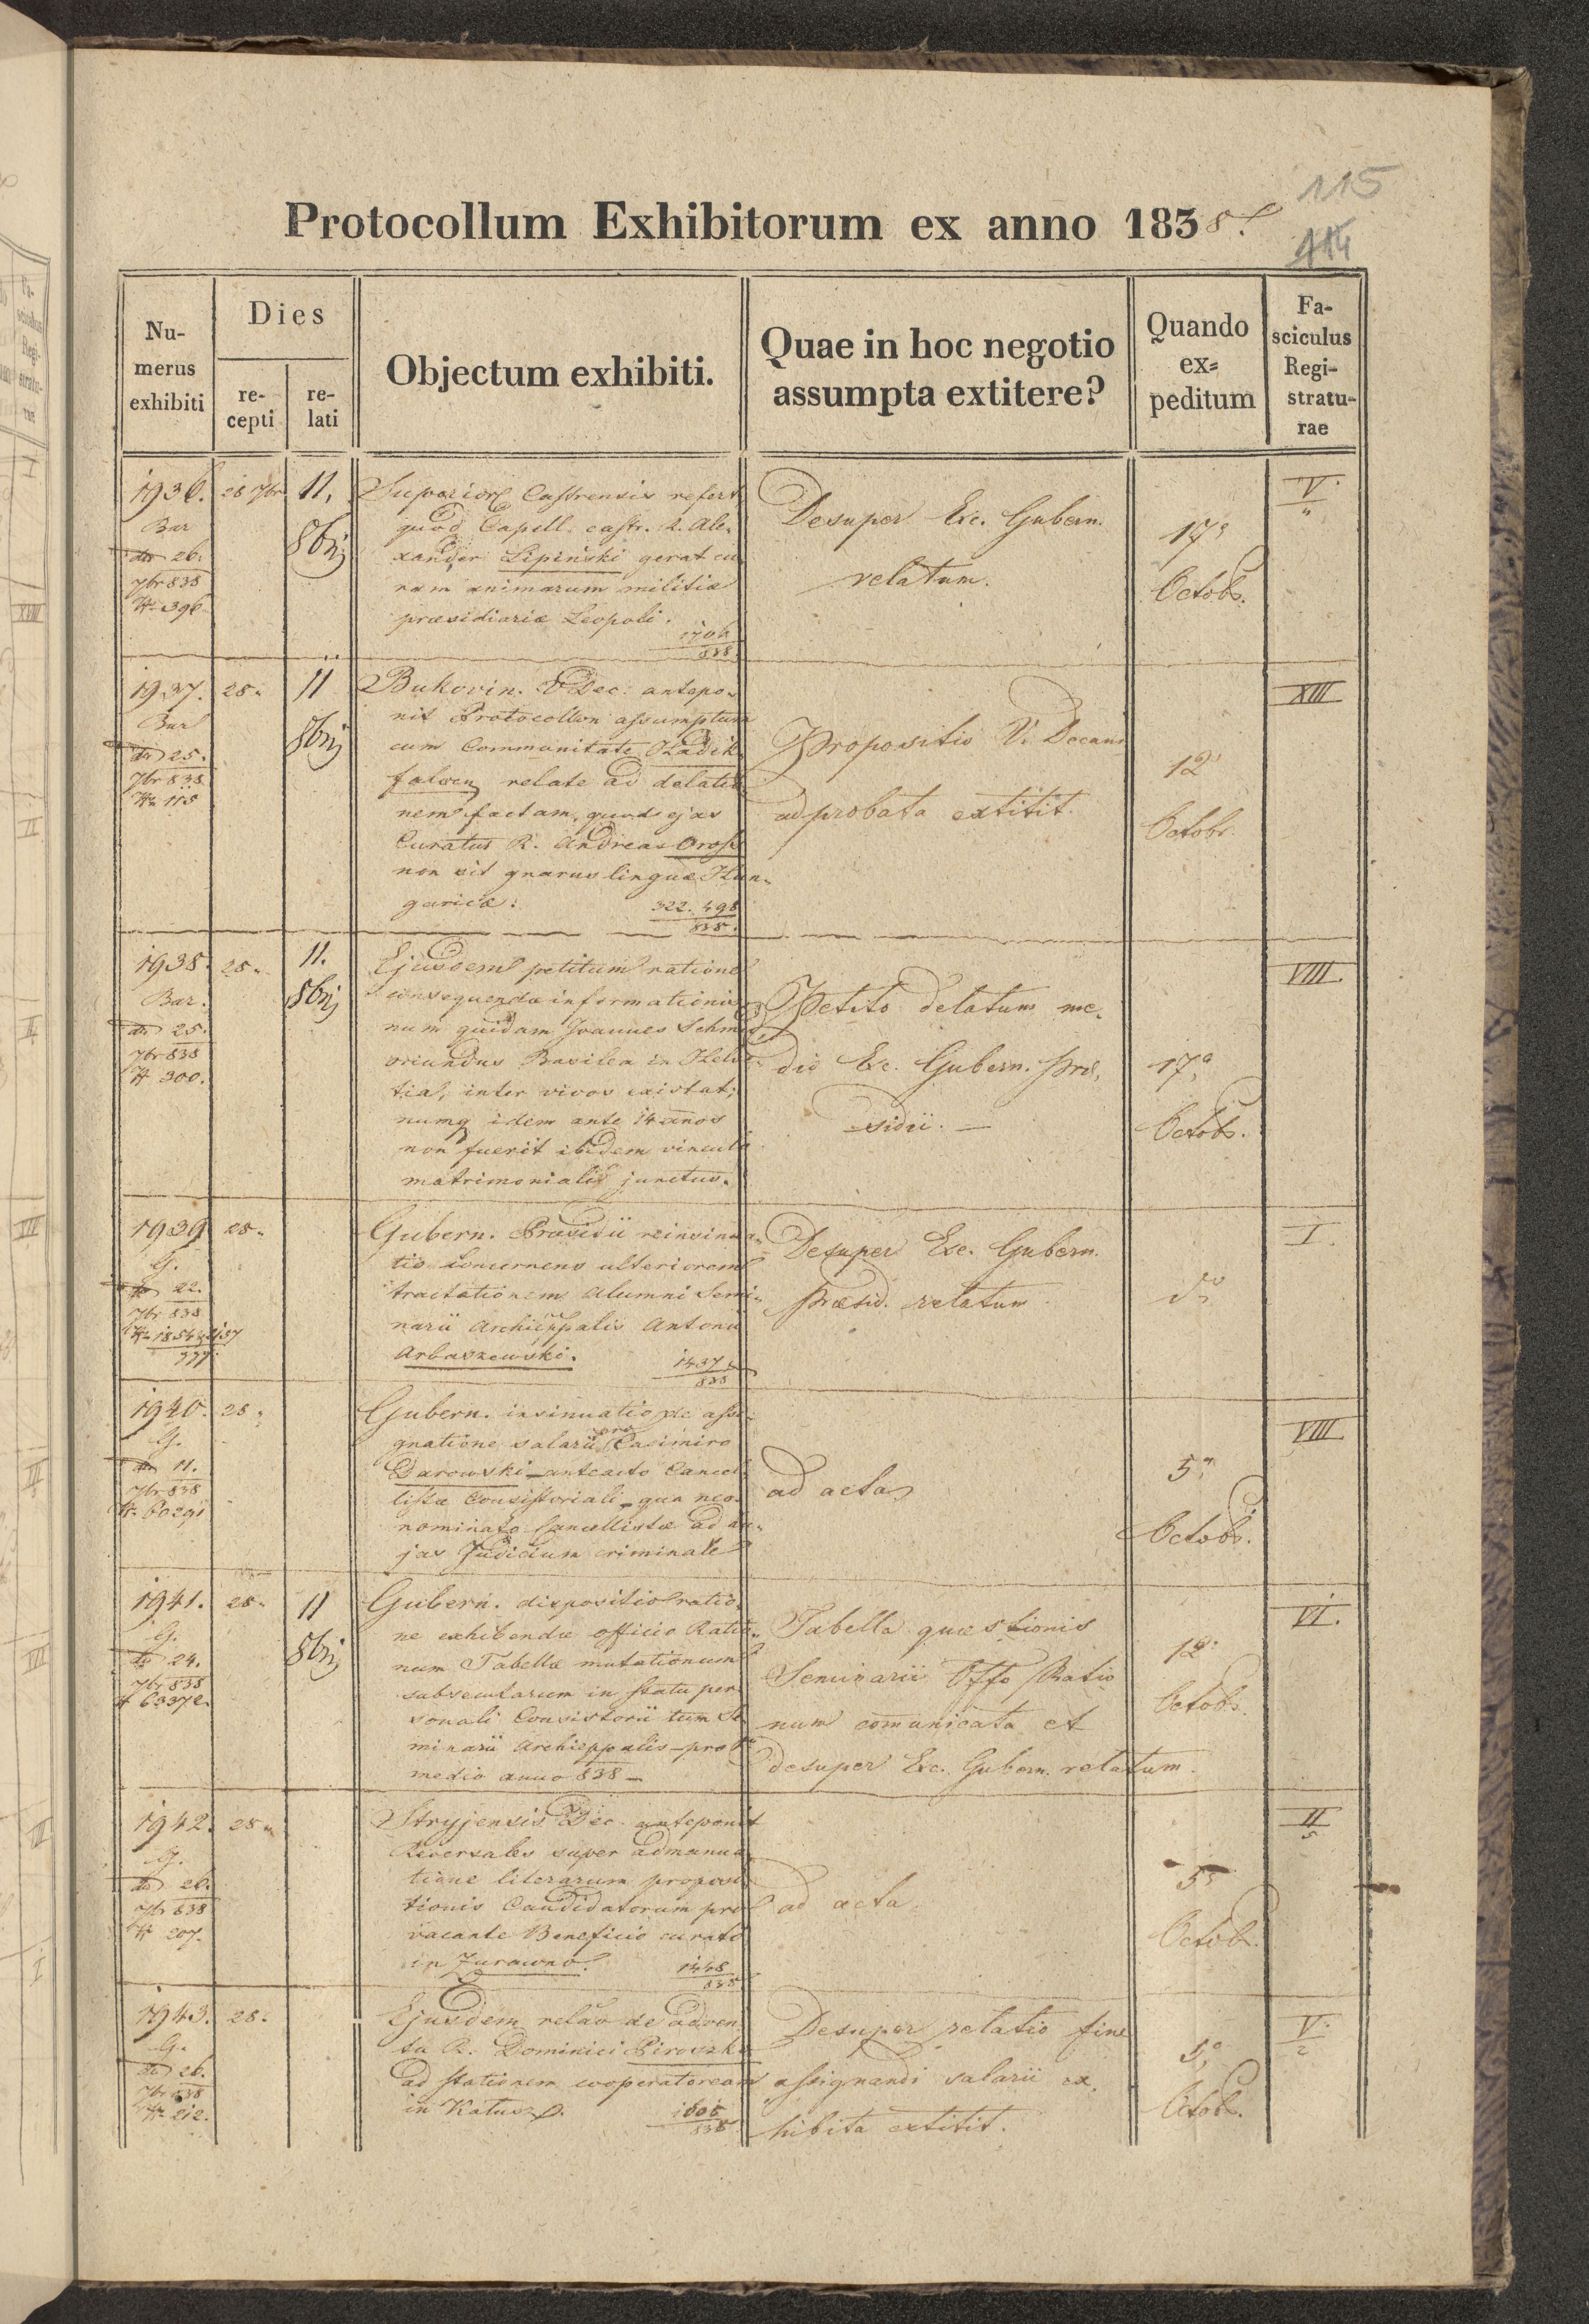 115
114
Protocollum Exhibitorum ex anno 1838.
Numerus exhibiti
Dies
recepti
relati
Objectum exhibiti.
Quae in hoc negotio assumpta extitere?
Quando expeditum
Fasciculus Registraturae
1936. 28 7br 11.
Bar
dto 26.
7br 838
N 396
8bris
Superior Castrensis refert
quod Capell. castr. R. Ale-
xander Lipinski gerat cu
ram animarum militiæ
præsidiariæ Leopoli.
1706
838.
Desuper Exc. Gubern.
relatum.
17a
Octobr.
V.
1937. 28. 11
Bar
dto 25.
7br 838
N 115
8bris
Bukovin. V Dec. antepo-
nit Protocollon assumptum
cum Communitate Hadik
falven relate ad delatio
nem factam, quod ejas
Curatus R. Andreas Oross
non sit gnarus linguæ Hun-
garicæ.
322. 498
838.
Propositio V. Decani
adprobata extitit.
12
Octobr.
XIII
1938. 28. 11.
Bar.
dto 25.
7br 838
N 300.
8bris
Ejusdem petitum ratione
consequenda informationis
num quidam Joannes Schmid
oriundus Basilea in Helve
tia, inter vivos existat;
numq idem ante 14 anos
non fuerit ibidem vinculo
matrimoniali junctus.
Petito delatum me-
dio Exc. Gubern. Præ-
sidii. —
17a
Octobr.
VIII
1939 28.
G.
dto 22.
7br 838
Gubern. Præsidii reinsinua-
tio concernens ulteriorem
tractationem Alumni Semi-
narii Archieppalis Antonii
Arbaszewski.
1437
838
Desuper Exc. Gubern.
Præsid. relatum
do
I.
1940. 28.
G.
dto 11.
7br 838
N. 60291
Gubern. insinuatio de assi-
gnatione salarii pro Casimiro
Darowski – anteacto Cancel
listæ Consistoriali – qua neo-
nominato Cancellistæ ad
jas Judicium criminale
ad acta
5a
Octobr.
VIII
1941. 28. 11
G.
dto 24.
7br 838
N 63372.
8bris
Gubern. dispositio ratio-
ne exhibendæ officio Ratio-
num Tabellæ mutationum
subsecutarum in statu per
sonali Consistorii tum Se
minarii Archieppalis – pro
medio anno 838 —
Tabella quæstionis
Seminarii Offo Ratio
num comunicata et
desuper Exc. Gubern. relatum.
12
Octobr.
VI.
1942. 28.
G.
dto 26.
7br 838
N 207.
Stryjensis Dec. anteponit
Reversales super admanua
tione literarum proposi
tionis Candidatorum pro
vacante Beneficio curato
in Zurawno.
1448
838
ad acta
5a
Octobr.
II
5
1943. 28.
G.
dto 26.
7br 838
N 212.
Ejusdem relao de adven
tu R. Dominici Piroszka
ad stationem cooperatoream
in Kalusz.
1605
838.
Desuper relatio fine
assignandi salarii ex-
hibita extitit.
5a
Octobr.
V.
2